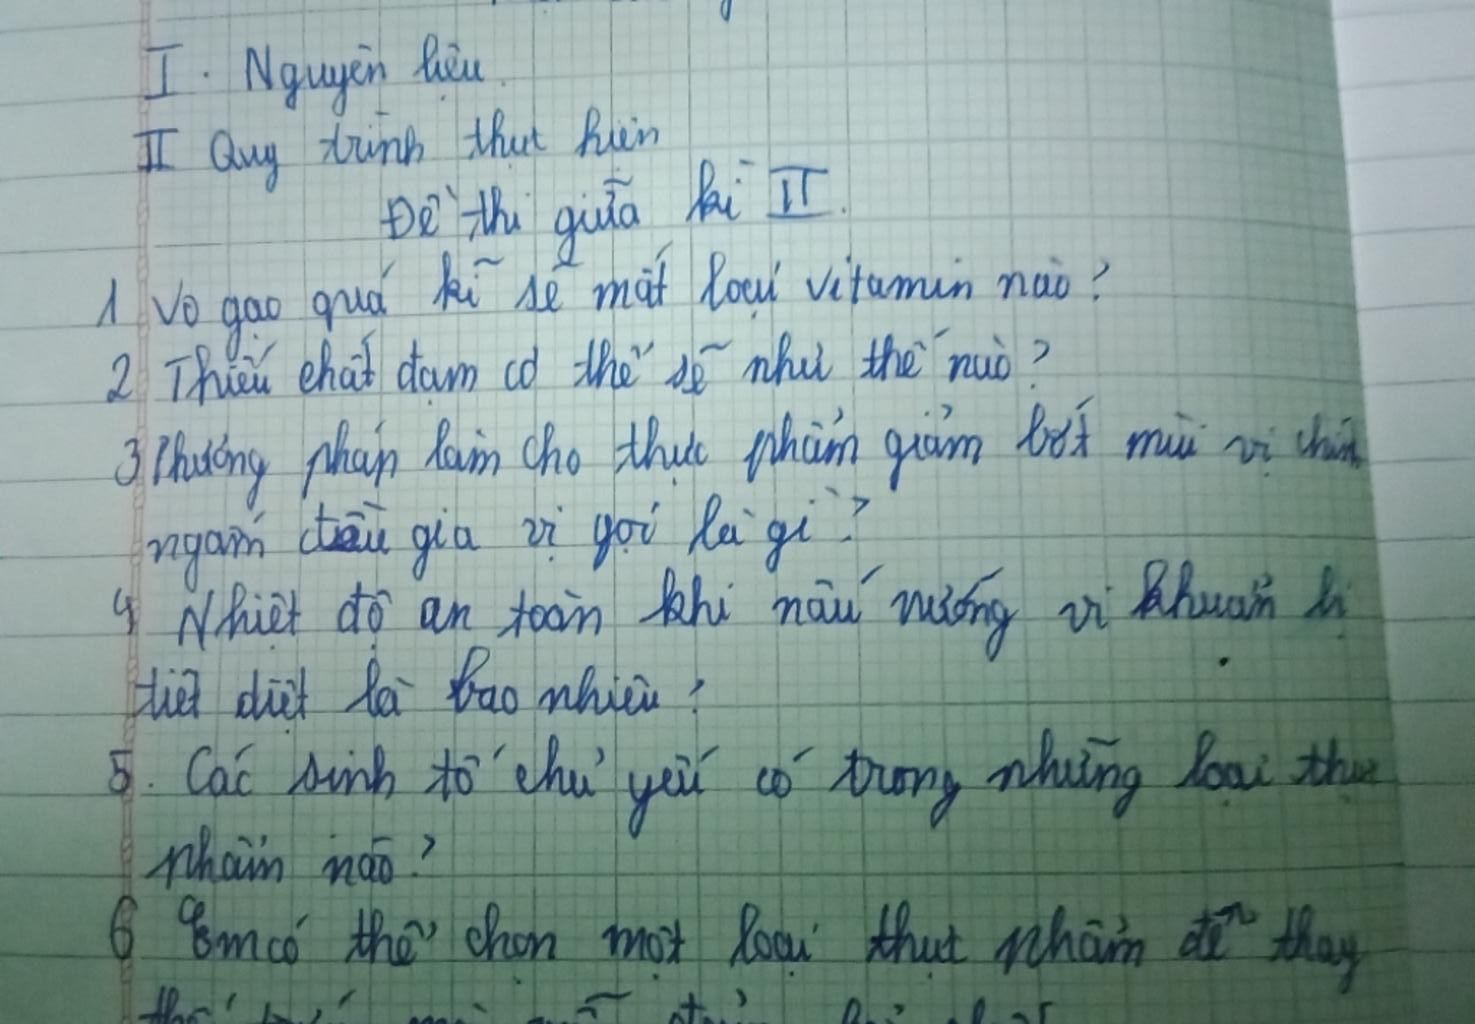 I. Nguyên liệu.
II Quy trình thực hiện
Đề thi giữa kì II.
1 Vo gạo quá kĩ sẽ mất loại vitamin nào?
2 Thiếu chất đạm cơ thể sẽ như thế nào?
3 Phương pháp làm cho thực phẩm giảm bớt mùi vị chính
ngấm gia vị gọi là gì?
4 Nhiệt độ an toàn khi nấu nướng vi khuẩn bị
tiêt diệt là bao nhiêu?
5. Các sinh tố chủ yếu có trong những loại thực
phẩm nào?
6 Em có thể chọn một loại thực phẩm để thay